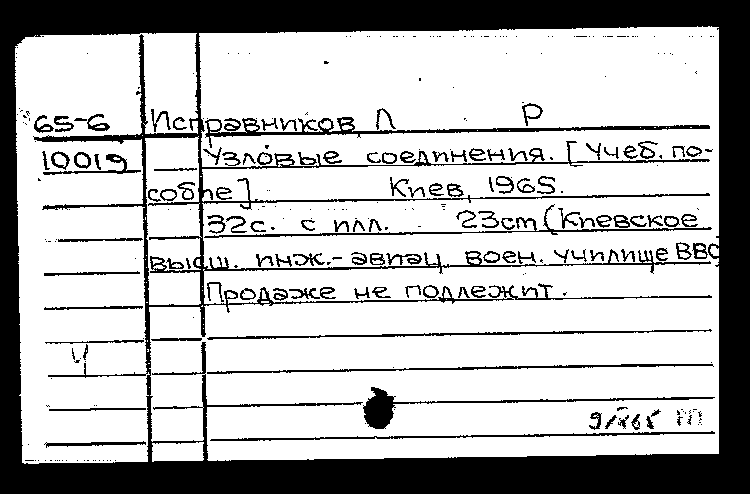 65-6 Исправников, Л Р
10019 Узловые соединения. [Учеб. по-
собие]. Киев, 1965.
32с. с илл. 23cm (Киевское
высш. инж.-авиац. воен. училище ВВС
Продаже не подлежит.
Ч